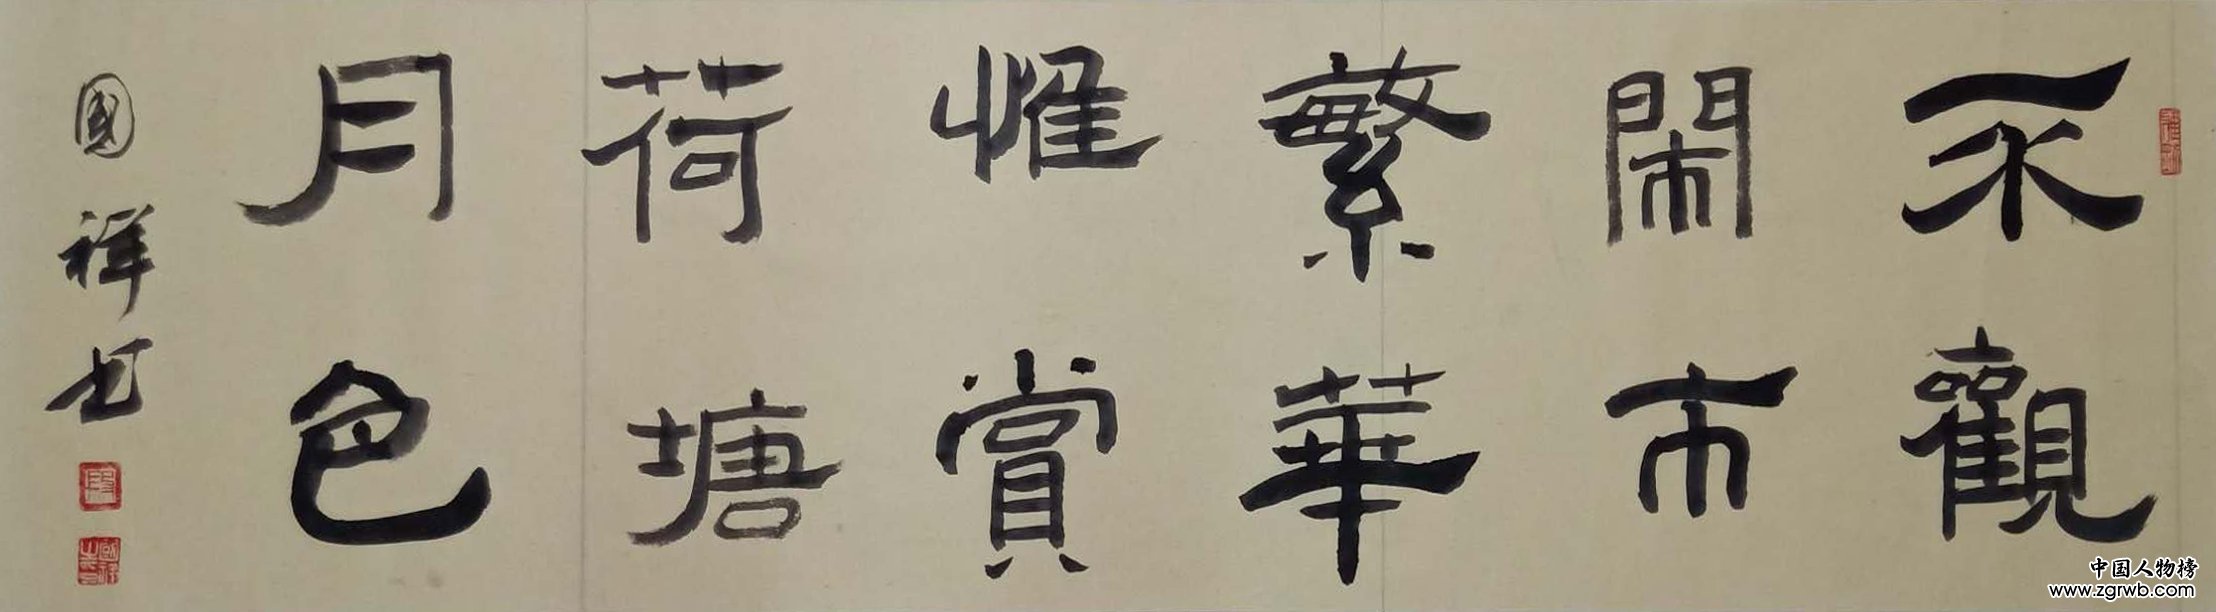 不觀
閙市
繁華
惟賞
荷塘
月色
國祥书
中国人物榜
www.zgrwb.com